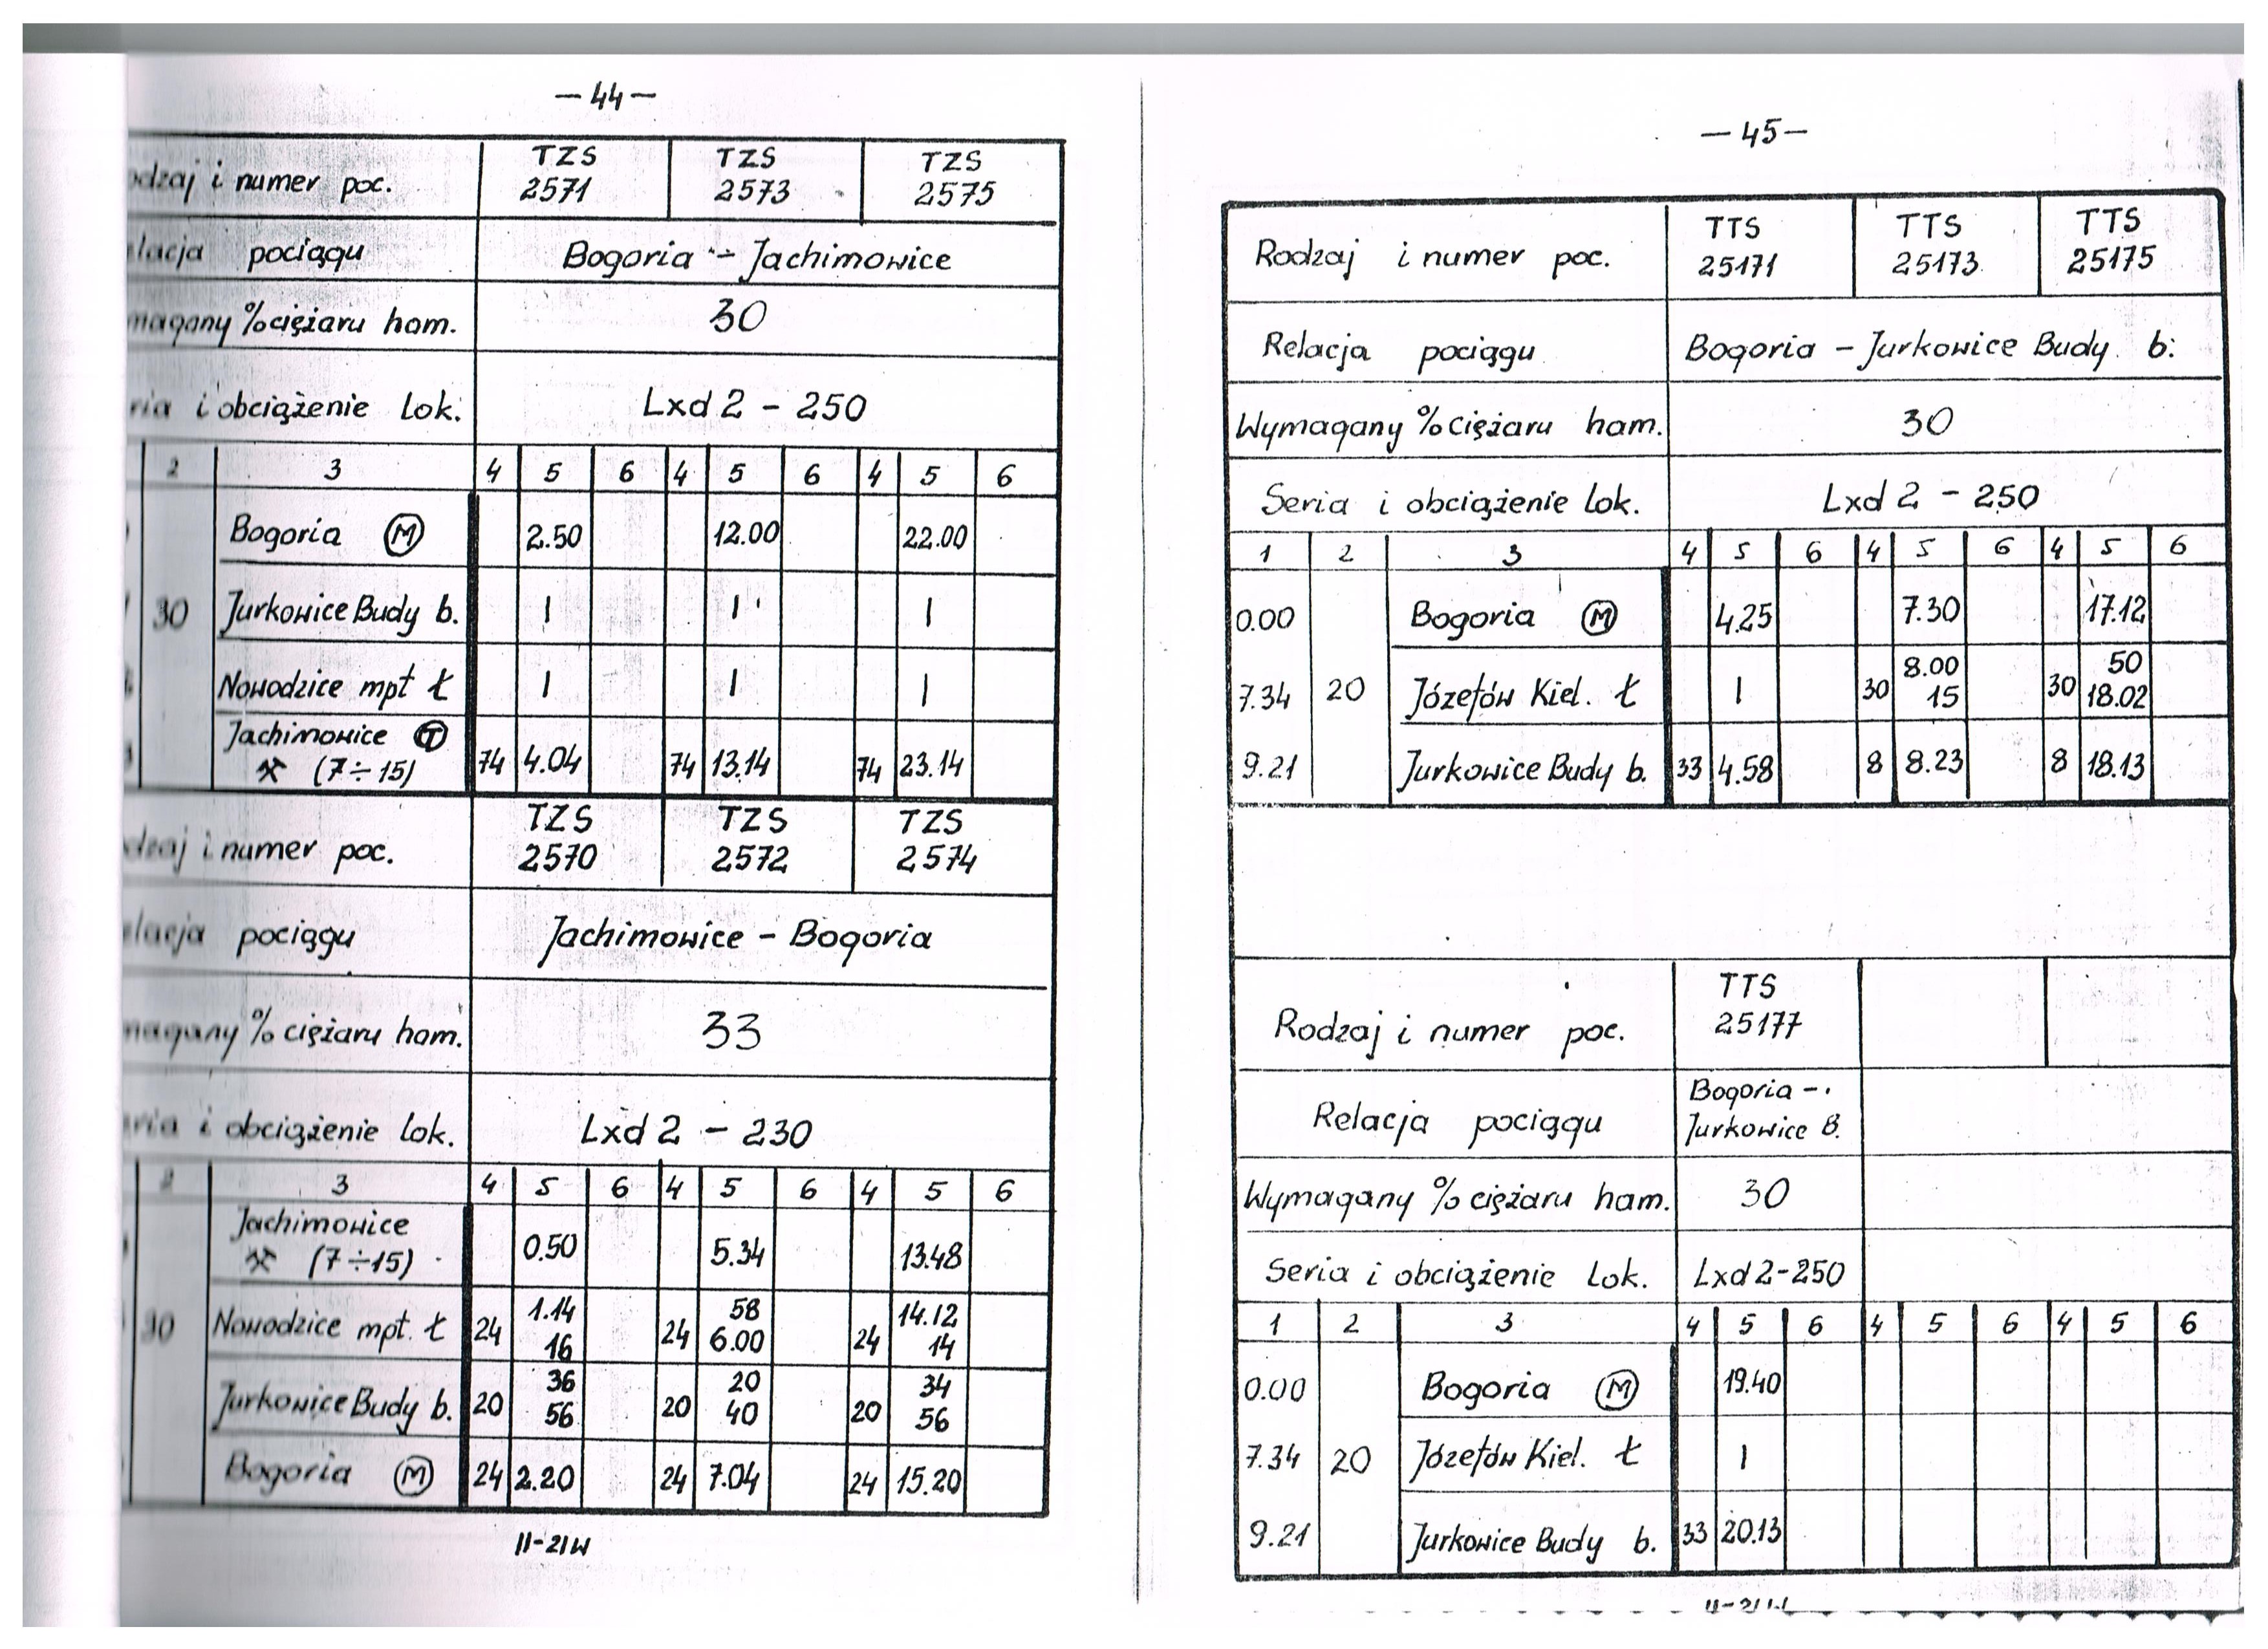 — 44 —
TZS TZS TZS
i numer poc. 2571 2573 2575
pociągu Bogoria - Jachimowice
% ciężaru ham. 30
i obciążenie lok. Lxd 2 - 250
2 3 4 5 6 4 5 6 4 5 6
Bogoria (M) 2.50 12.00 22.00
30 Jurkowice Budy b. | | |
Nowodzice mpt Ł | | |
Jachimowice (T)
⚒ (7÷15) 74 4.04 74 13.14 74 23.14
TZS TZS TZS
i numer poc. 2570 2572 2574
pociągu Jachimowice - Bogoria
% ciężaru ham. 33
i obciążenie lok. Lxd 2 - 230
2 3 4 5 6 4 5 6 4 5 6
Jachimowice
⚒ (7÷15) 0.50 5.34 13.48
1.14 58 14.12
30 Nowodzice mpt. Ł 24 16 24 6.00 24 14
36 20 34
Jurkowice Budy b. 20 56 20 40 20 56
Bogoria (M) 24 2.20 24 7.04 24 15.20
II-21W
— 45 —
TTS TTS TTS
Rodzaj i numer poc. 25171 25173 25175
Relacja pociągu Bogoria - Jurkowice Budy b.
Wymagany % ciężaru ham. 30
Seria i obciążenie lok. Lxd 2 - 250
1 2 3 4 5 6 4 5 6 4 5 6
0.00 Bogoria (M) 4.25 7.30 17.12
8.00 50
7.34 20 Józefów Kiel. Ł | 30 15 30 18.02
9.21 Jurkowice Budy b. 33 4.58 8 8.23 8 18.13
TTS
Rodzaj i numer poc. 25177
Bogoria -
Relacja pociągu Jurkowice B.
Wymagany % ciężaru ham. 30
Seria i obciążenie lok. Lxd 2-250
1 2 3 4 5 6 4 5 6 4 5 6
0.00 Bogoria (M) 19.40
7.34 20 Józefów Kiel. Ł |
9.21 Jurkowice Budy b. 33 20.13